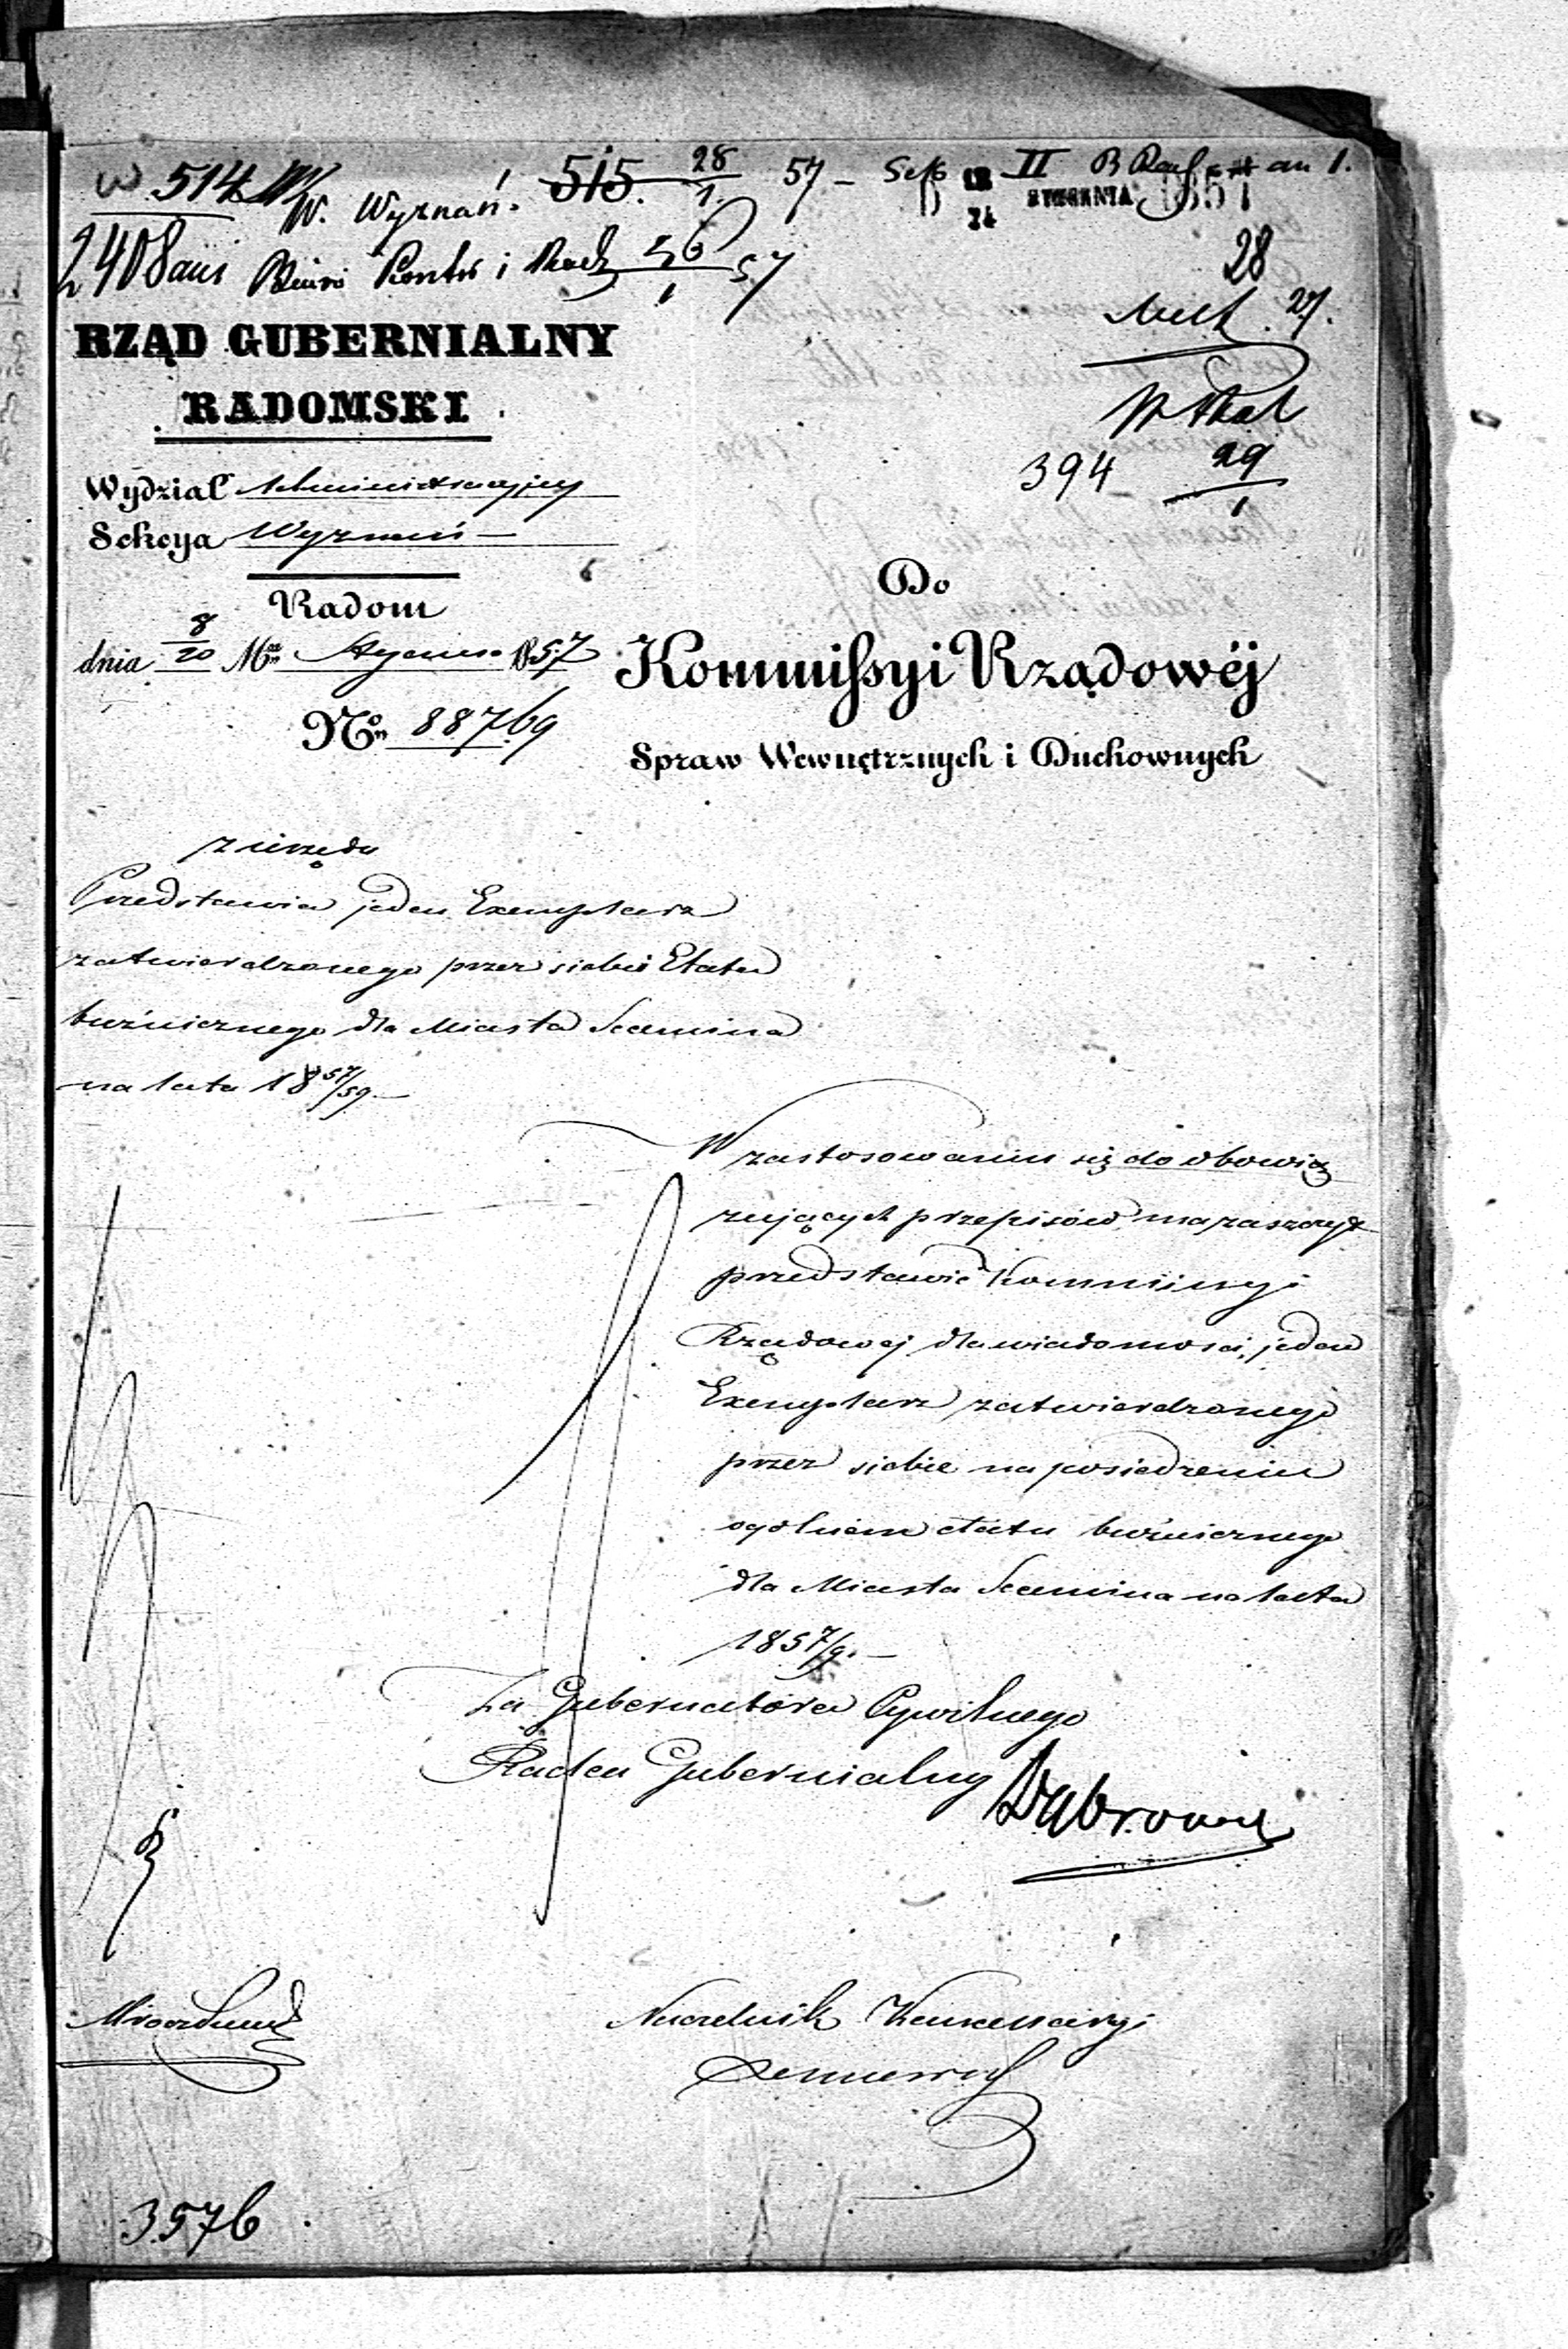 W 514 W. Wyznań. 515. 28/1. 57 – Sek II
12/24 STYCZNIA 1857
2408 Biuro Kontr i 26/1 57
28
27.
394 29/1
RZĄD GUBERNIALNY
RADOMSKI
Wydział Administracyjny
Sekcya Wyznań –
Radom
dnia 8/20 Mca Stycznia 1857
No 88769
Do
Kommissyi Rządowéj
Spraw Wewnętrznych i Duchownych
z urzędu
Przedstawia jeden Exemplarz
zatwierdzonego przez siebie Etatu
bużnicznego dla Miasta Secemina
na lata 1857/59 –
W zastosowaniu się do obowią
zujących przepisów, ma zaszczyt
przedstawić Kommissyi
Rządowej dla wiadomości, jeden
Exemplarz zatwierdzonego
przez siebie na posiedzeniu
ogólnem etatu bużnicznego
dla Miasta Secemina na lata
1857/9. –
Za Gubernatora Cywilnego
Radca Gubernialny Dąbrowski
Naczelnik Kancellaryi
3576